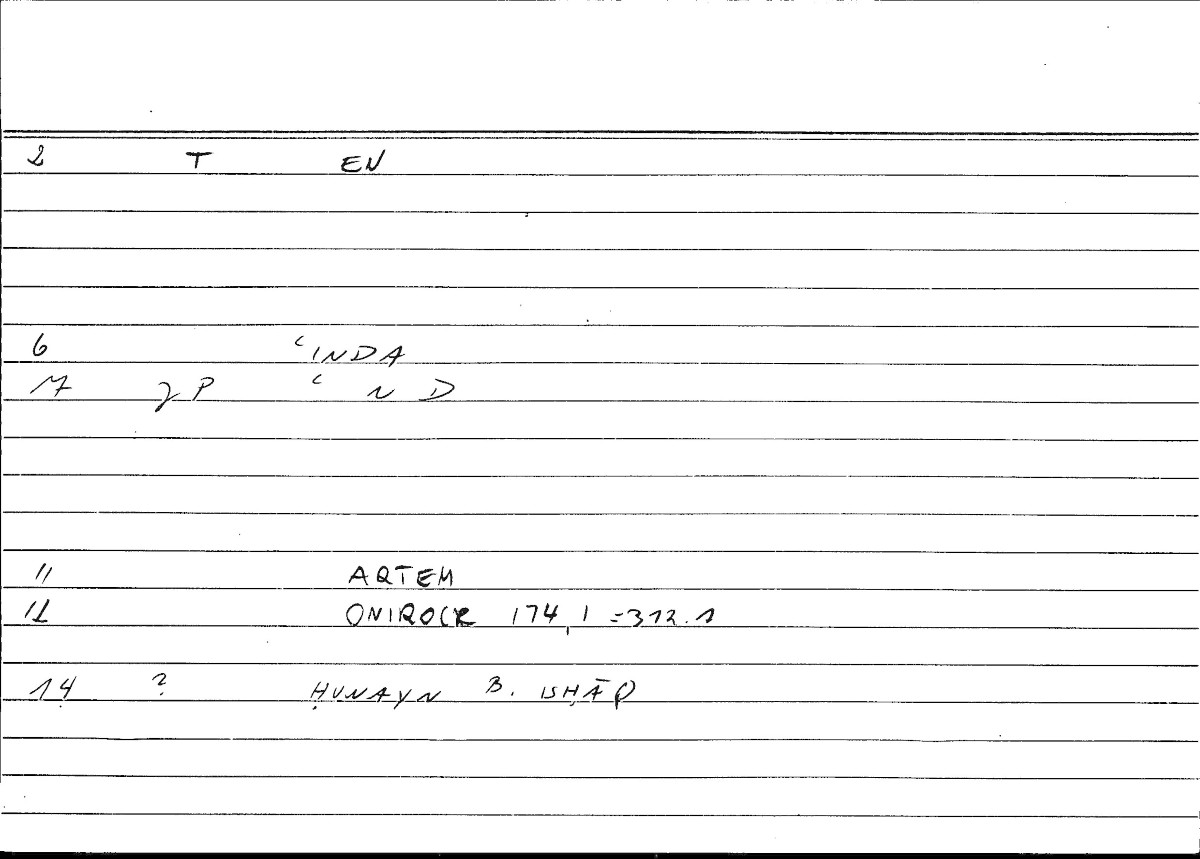 2 T EN
6 ʿINDA
17 ȝP ʿ N D
11 ARTEM
12 ONIROCR 174,1 = 312.1
14 ? ḤUNAYN B. ISḤĀQ